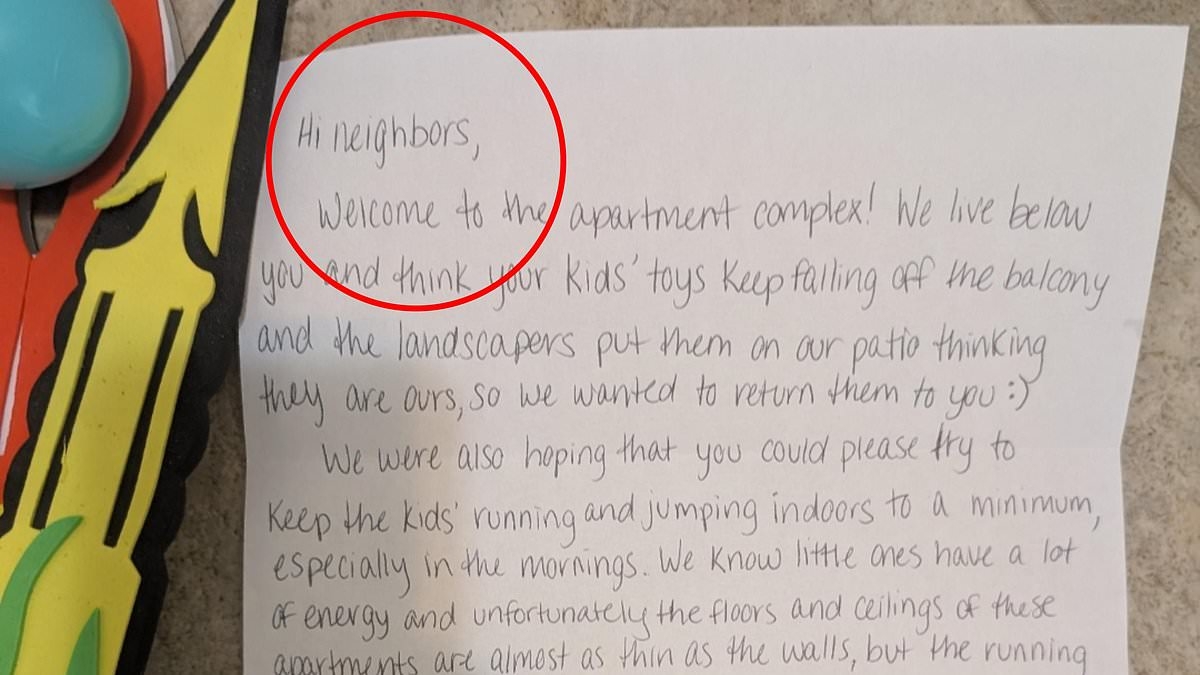 Hi neighbors,
Welcome to the apartment complex! We live below
you and think your kids' toys keep falling off the balcony
and the landscapers put them on our patio thinking
they are ours, so we wanted to return them to you :)
We were also hoping that you could please try to
keep the kids' running and jumping indoors to a minimum,
especially in the mornings. We know little ones have a lot
of energy and unfortunately the floors and ceilings of these
apartments are almost as thin as the walls, but the running